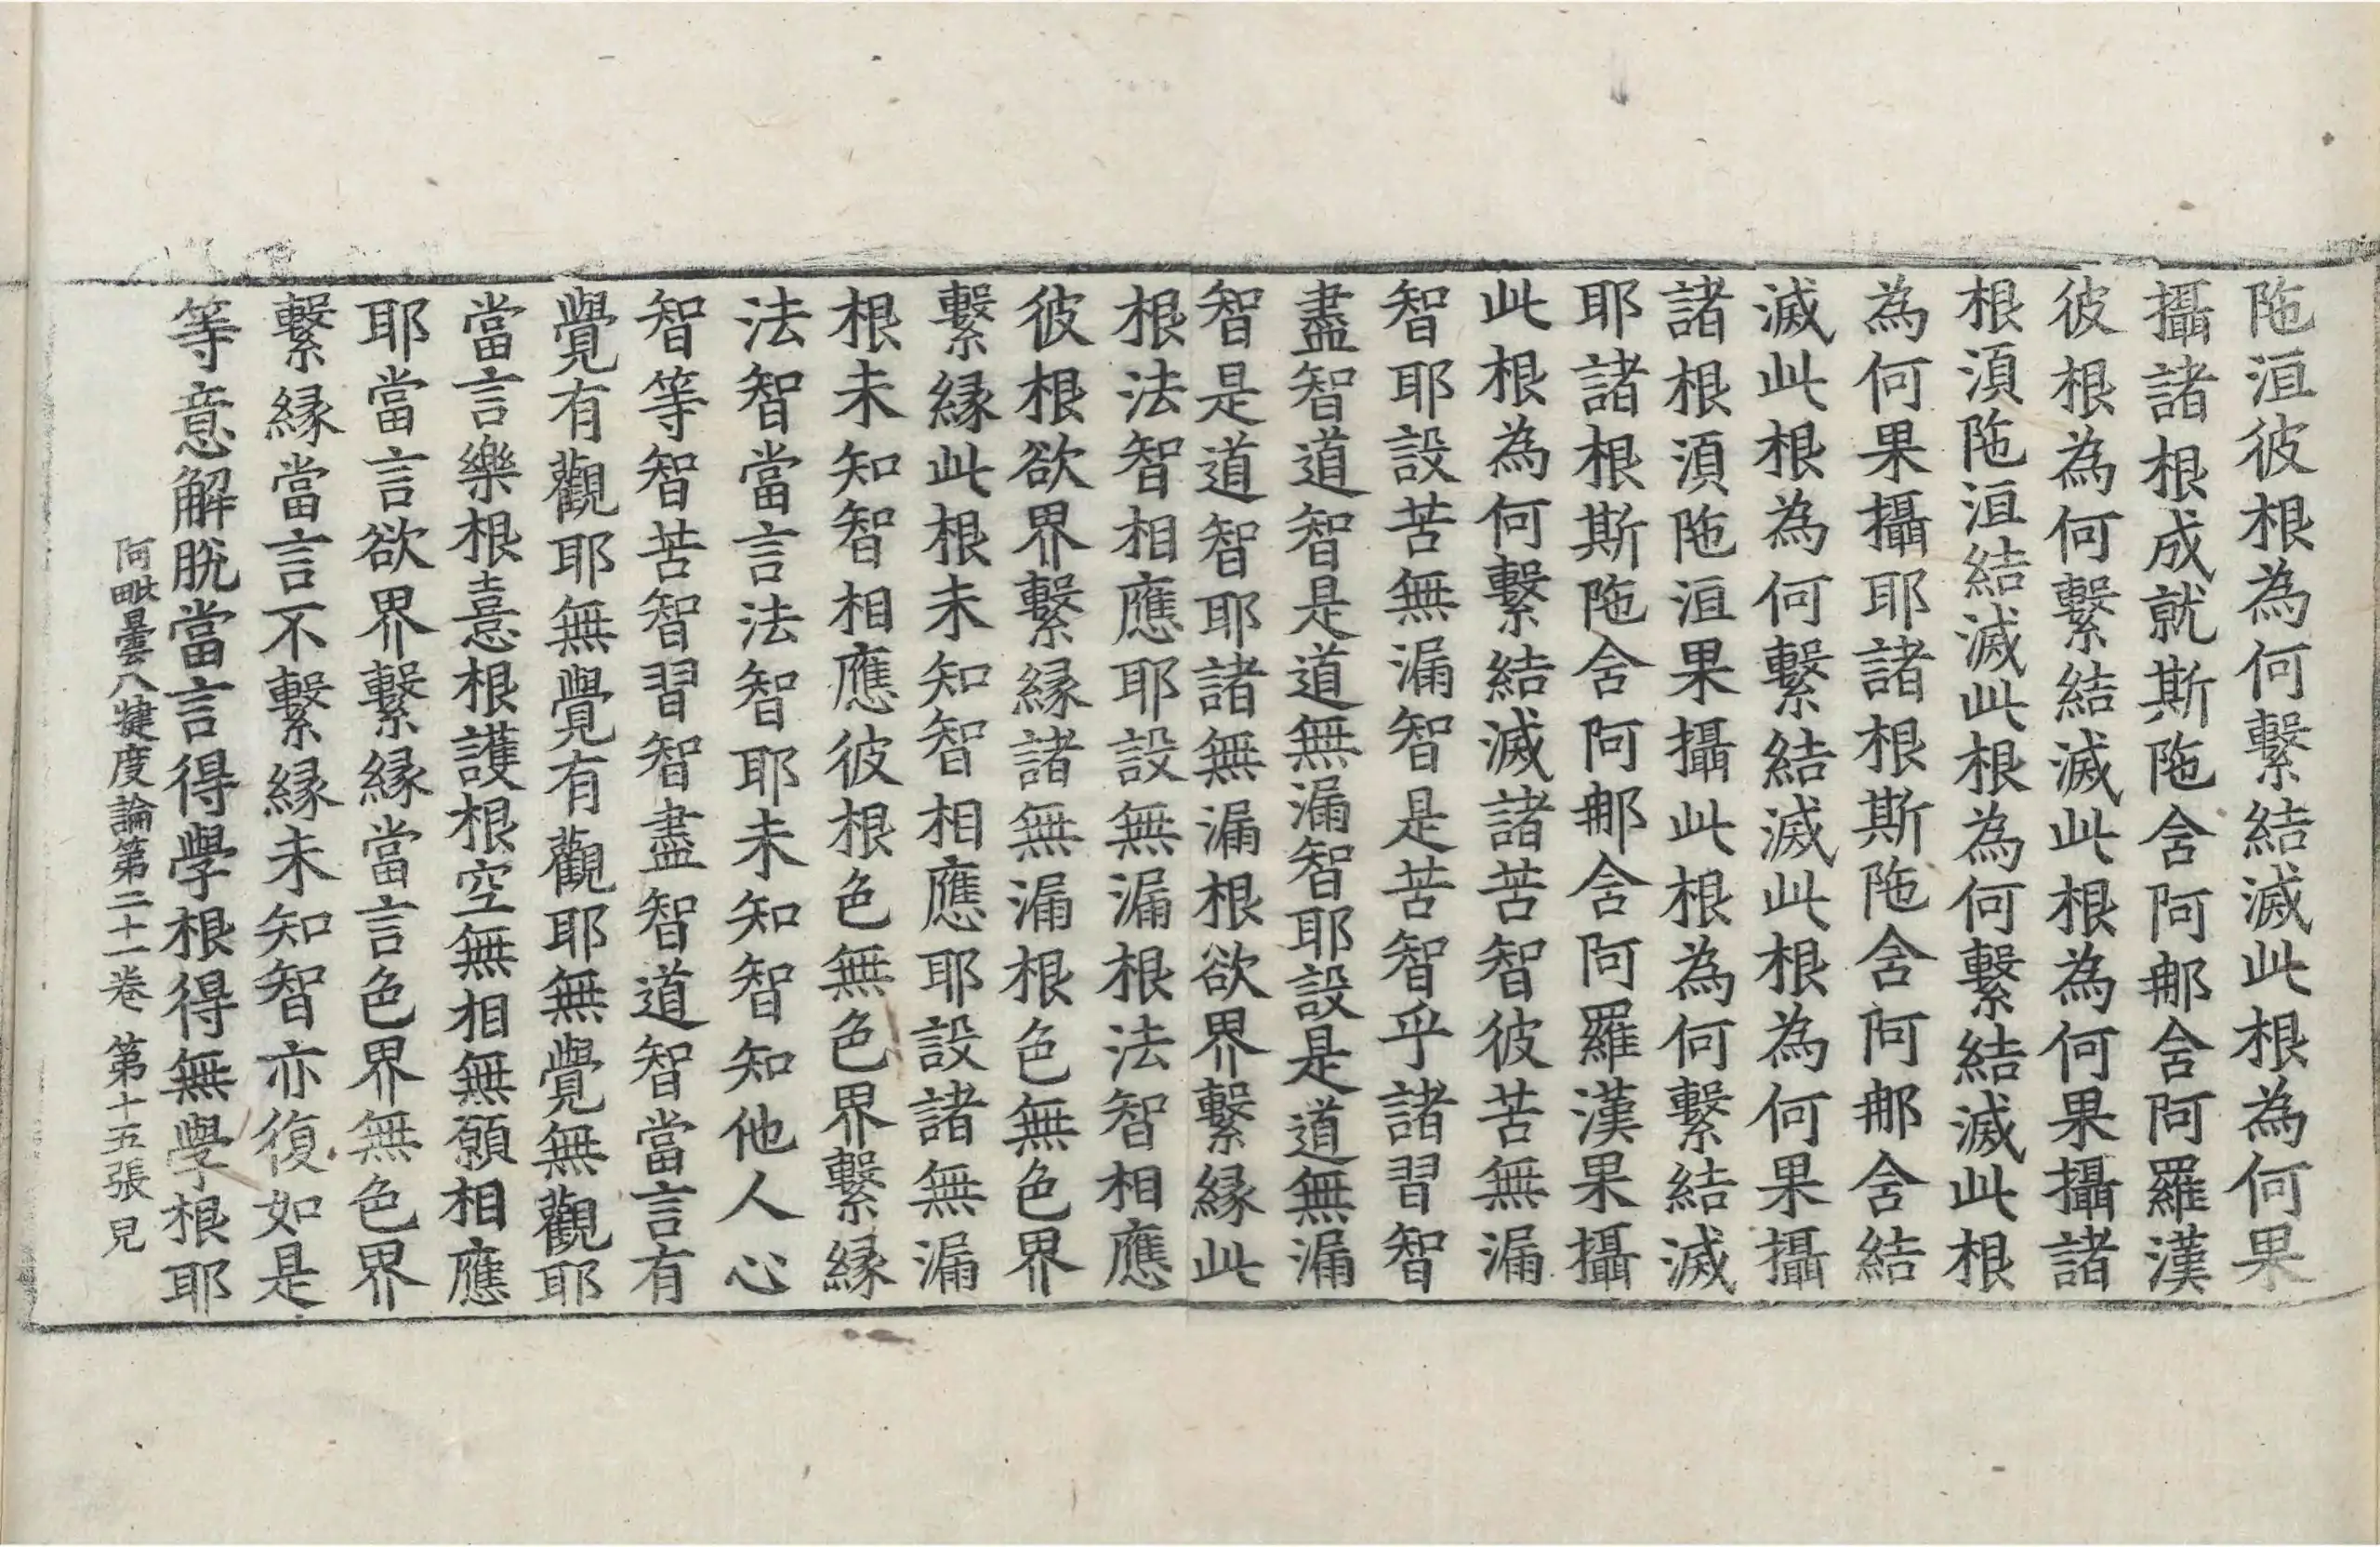 陁洹彼根為何繫結滅此根為何果
攝諸根成就斯陁含阿那含阿羅漢
彼根為何繫結滅此根為何果攝諸
根湏陁洹結滅此根為何繫結滅此根
為何果攝耶諸根斯陁含阿那含結
滅此根為何繫結滅此根為何果攝
諸根湏陁洹果攝此根為何繫結滅
耶諸根斯陁含阿那含阿羅漢果攝
此根為何繫結滅諸苦智彼苦無漏
智耶設苦無漏智是苦智乎諸習智
盡智道智是道無漏智耶設是道無漏
智是道智耶諸無漏根欲界繫縁此
根法智相應耶設無漏根法智相應
彼根欲界繫縁諸無漏根色無色界
繫縁此根未知智相應耶設諸無漏
根未知智相應彼根色無色界繫縁
法智當言法智耶未知智知他人心
智等智苦智習智盡智道智當言有
覺有觀耶無覺有觀耶無覺無觀耶
當言樂根憙根護根空無相無願相應
耶當言欲界繫縁當言色界無色界
繫縁當言不繫縁未知智亦復如是
等意解脫當言得學根得無學根耶
阿毗曇八揵度論第二十一卷 第十五張 見